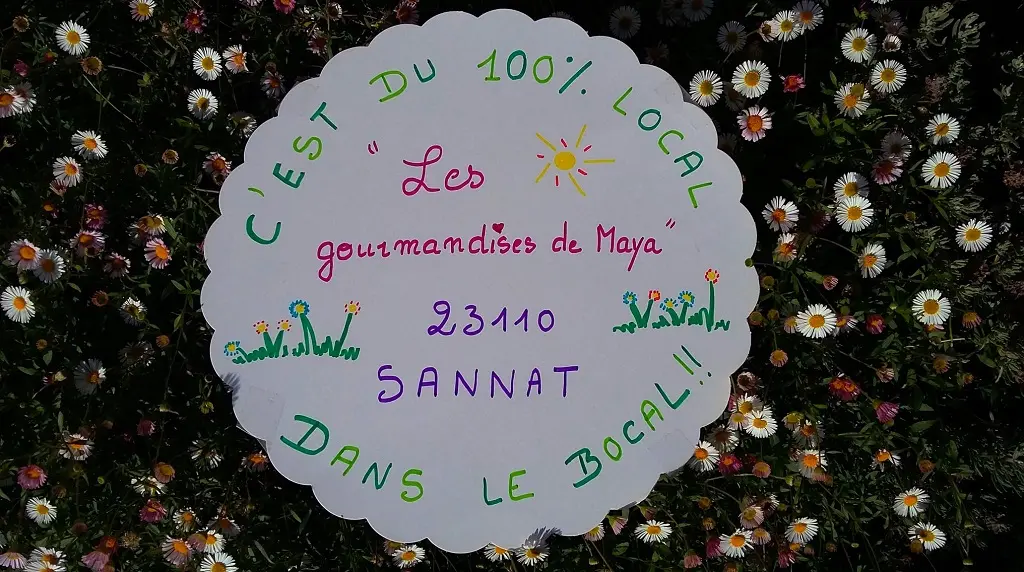 C'EST DU 100% LOCAL
"Les
gourmandises de Maya"
23110
SANNAT
DANS LE BOCAL!!